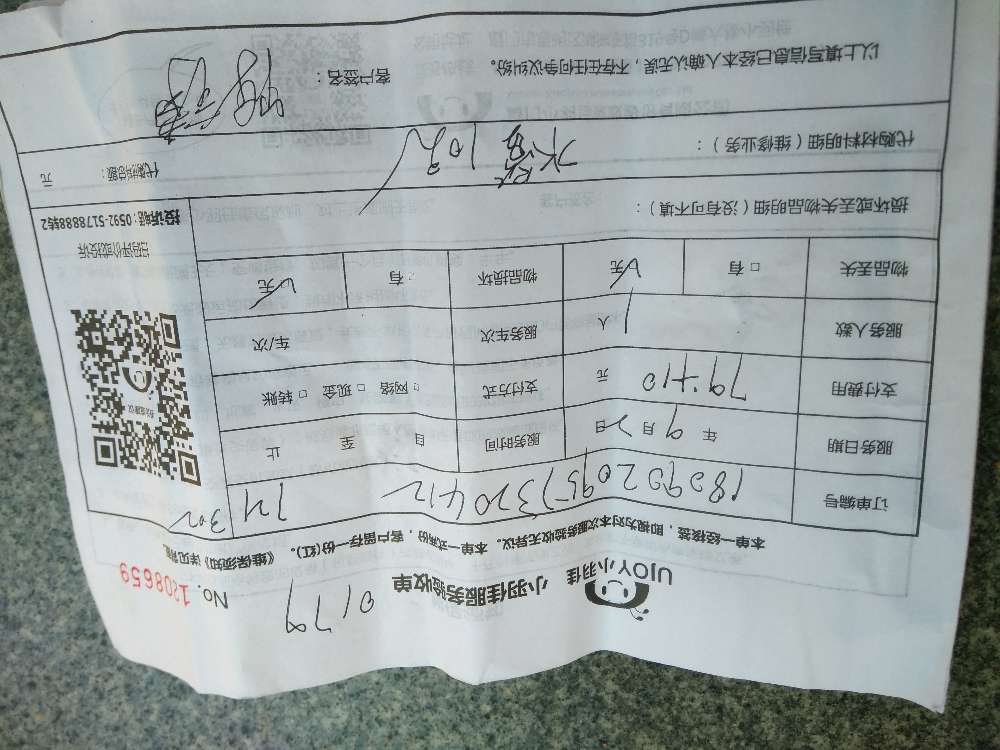 UJOY小羽佳
小羽佳服务验收单
0179
No. 1208659
本单一经核签，即视为对本次服务验收无异议。本单一式两份，客户留存一份(红)。《维保须知》详见背
订单编号
302
服务日期 年 9 月 20 日 服务时间 自 至 止
支付费用 79+10 元 支付方式 □ 网络 □ 现金 □ 转账
服务人数 1 人 服务车次 车/次
物品丢失 □ 有 无 物品损坏 有 无
扫码评价或投诉
投诉电话: 0592-5178888转2
损坏或丢失物品明细（没有可不填）：
代购材料明细（维修业务）： 10元
代购材料总额： 元
以上填写信息已经本人确认无误，不存在任何争议纠纷。 客户签名：